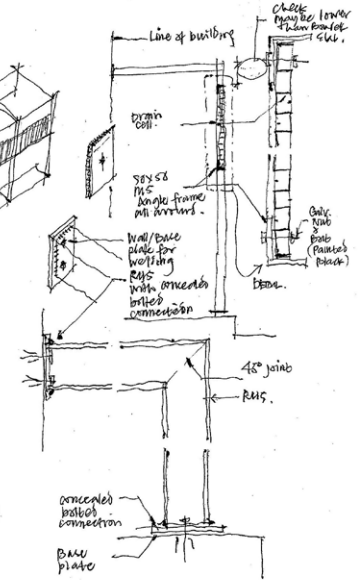 Line of building
Check
maybe lower
than Parapet
slab.
Drain
cell.
50x50
MS
Angle frame
all around.
Galv.
Nut
&
Bolt
(Painted
black)
Detail.
Wall/Base
plate for
welding
RHS
with concealed
bolted
connection
45° joint
RHS.
concealed
bolted
connection
Base
plate